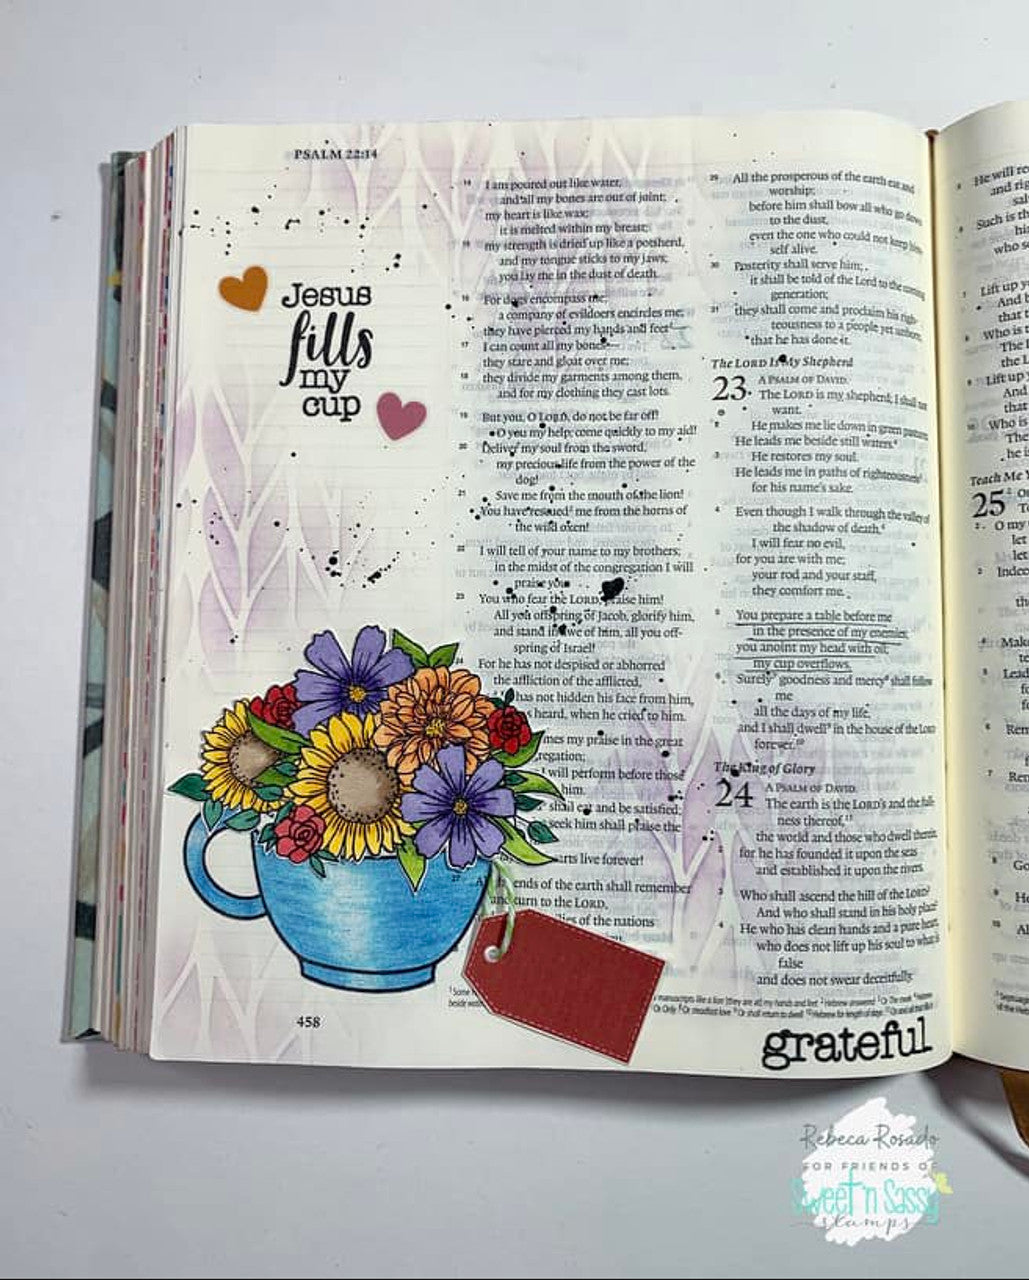 PSALM 22:14
Jesus
fills
my
cup
14 I am poured out like water,
and all my bones are out of joint;
my heart is like wax;
it is melted within my breast;
15 my strength is dried up like a potsherd,
and my tongue sticks to my jaws;
you lay me in the dust of death.
16 For dogs encompass me;
a company of evildoers encircles me;
they have pierced my hands and feet
17 I can count all my bones—
they stare and gloat over me;
18 they divide my garments among them,
and for my clothing they cast lots.
19 But you, O LORD, do not be far off!
O you my help, come quickly to my aid!
20 Deliver my soul from the sword,
my precious life from the power of the
dog!
21 Save me from the mouth of the lion!
You have rescued² me from the horns of
the wild oxen!
22 I will tell of your name to my brothers;
in the midst of the congregation I will
praise you:
23 You who fear the LORD, praise him!
All you offspring of Jacob, glorify him,
and stand in awe of him, all you off-
spring of Israel!
24 For he has not despised or abhorred
the affliction of the afflicted,
has not hidden his face from him,
heard, when he cried to him.
mes my praise in the great
regation;
I will perform before those
him.
shall eat and be satisfied;
seek him shall praise the
arts live forever!
27 ends of the earth shall remember
and turn to the LORD,
of the nations
29 All the prosperous of the earth eat and
worship;
before him shall bow all who go down
to the dust,
even the one who could not keep him-
self alive.
30 Posterity shall serve him;
it shall be told of the Lord to the coming
generation;
31 they shall come and proclaim his righ-
teousness to a people yet unborn,
that he has done it.
The LORD Is My Shepherd
23 A PSALM OF DAVID.
The LORD is my shepherd; I shall not
want.
2 He makes me lie down in green pastures.
He leads me beside still waters.⁴
3 He restores my soul.
He leads me in paths of righteousness⁵
for his name's sake.
4 Even though I walk through the valley of
the shadow of death,⁶
I will fear no evil,
for you are with me;
your rod and your staff,
they comfort me.
5 You prepare a table before me
in the presence of my enemies;
you anoint my head with oil;
my cup overflows.
6 Surely⁷ goodness and mercy⁸ shall follow
me
all the days of my life,
and I shall dwell⁹ in the house of the LORD
forever.¹⁰
The King of Glory
24 A PSALM OF DAVID.
The earth is the LORD's and the full-
ness thereof,¹¹
the world and those who dwell therein,
2 for he has founded it upon the seas
and established it upon the rivers.
3 Who shall ascend the hill of the LORD?
And who shall stand in his holy place?
4 He who has clean hands and a pure heart,
who does not lift up his soul to what is
false
and does not swear deceitfully.
458
grateful
He will re
Such is th
who se
Lift up y
And b
Who is
The L
Lift up
And
that
Who is
Th
he is
Teach Me
25
O my
let
let
Indee
th
Make
te
Lead
Rem
Ren
Go
He
Al
Rebeca Rosado
FOR FRIENDS OF
Sweet 'n Sassy
stamps